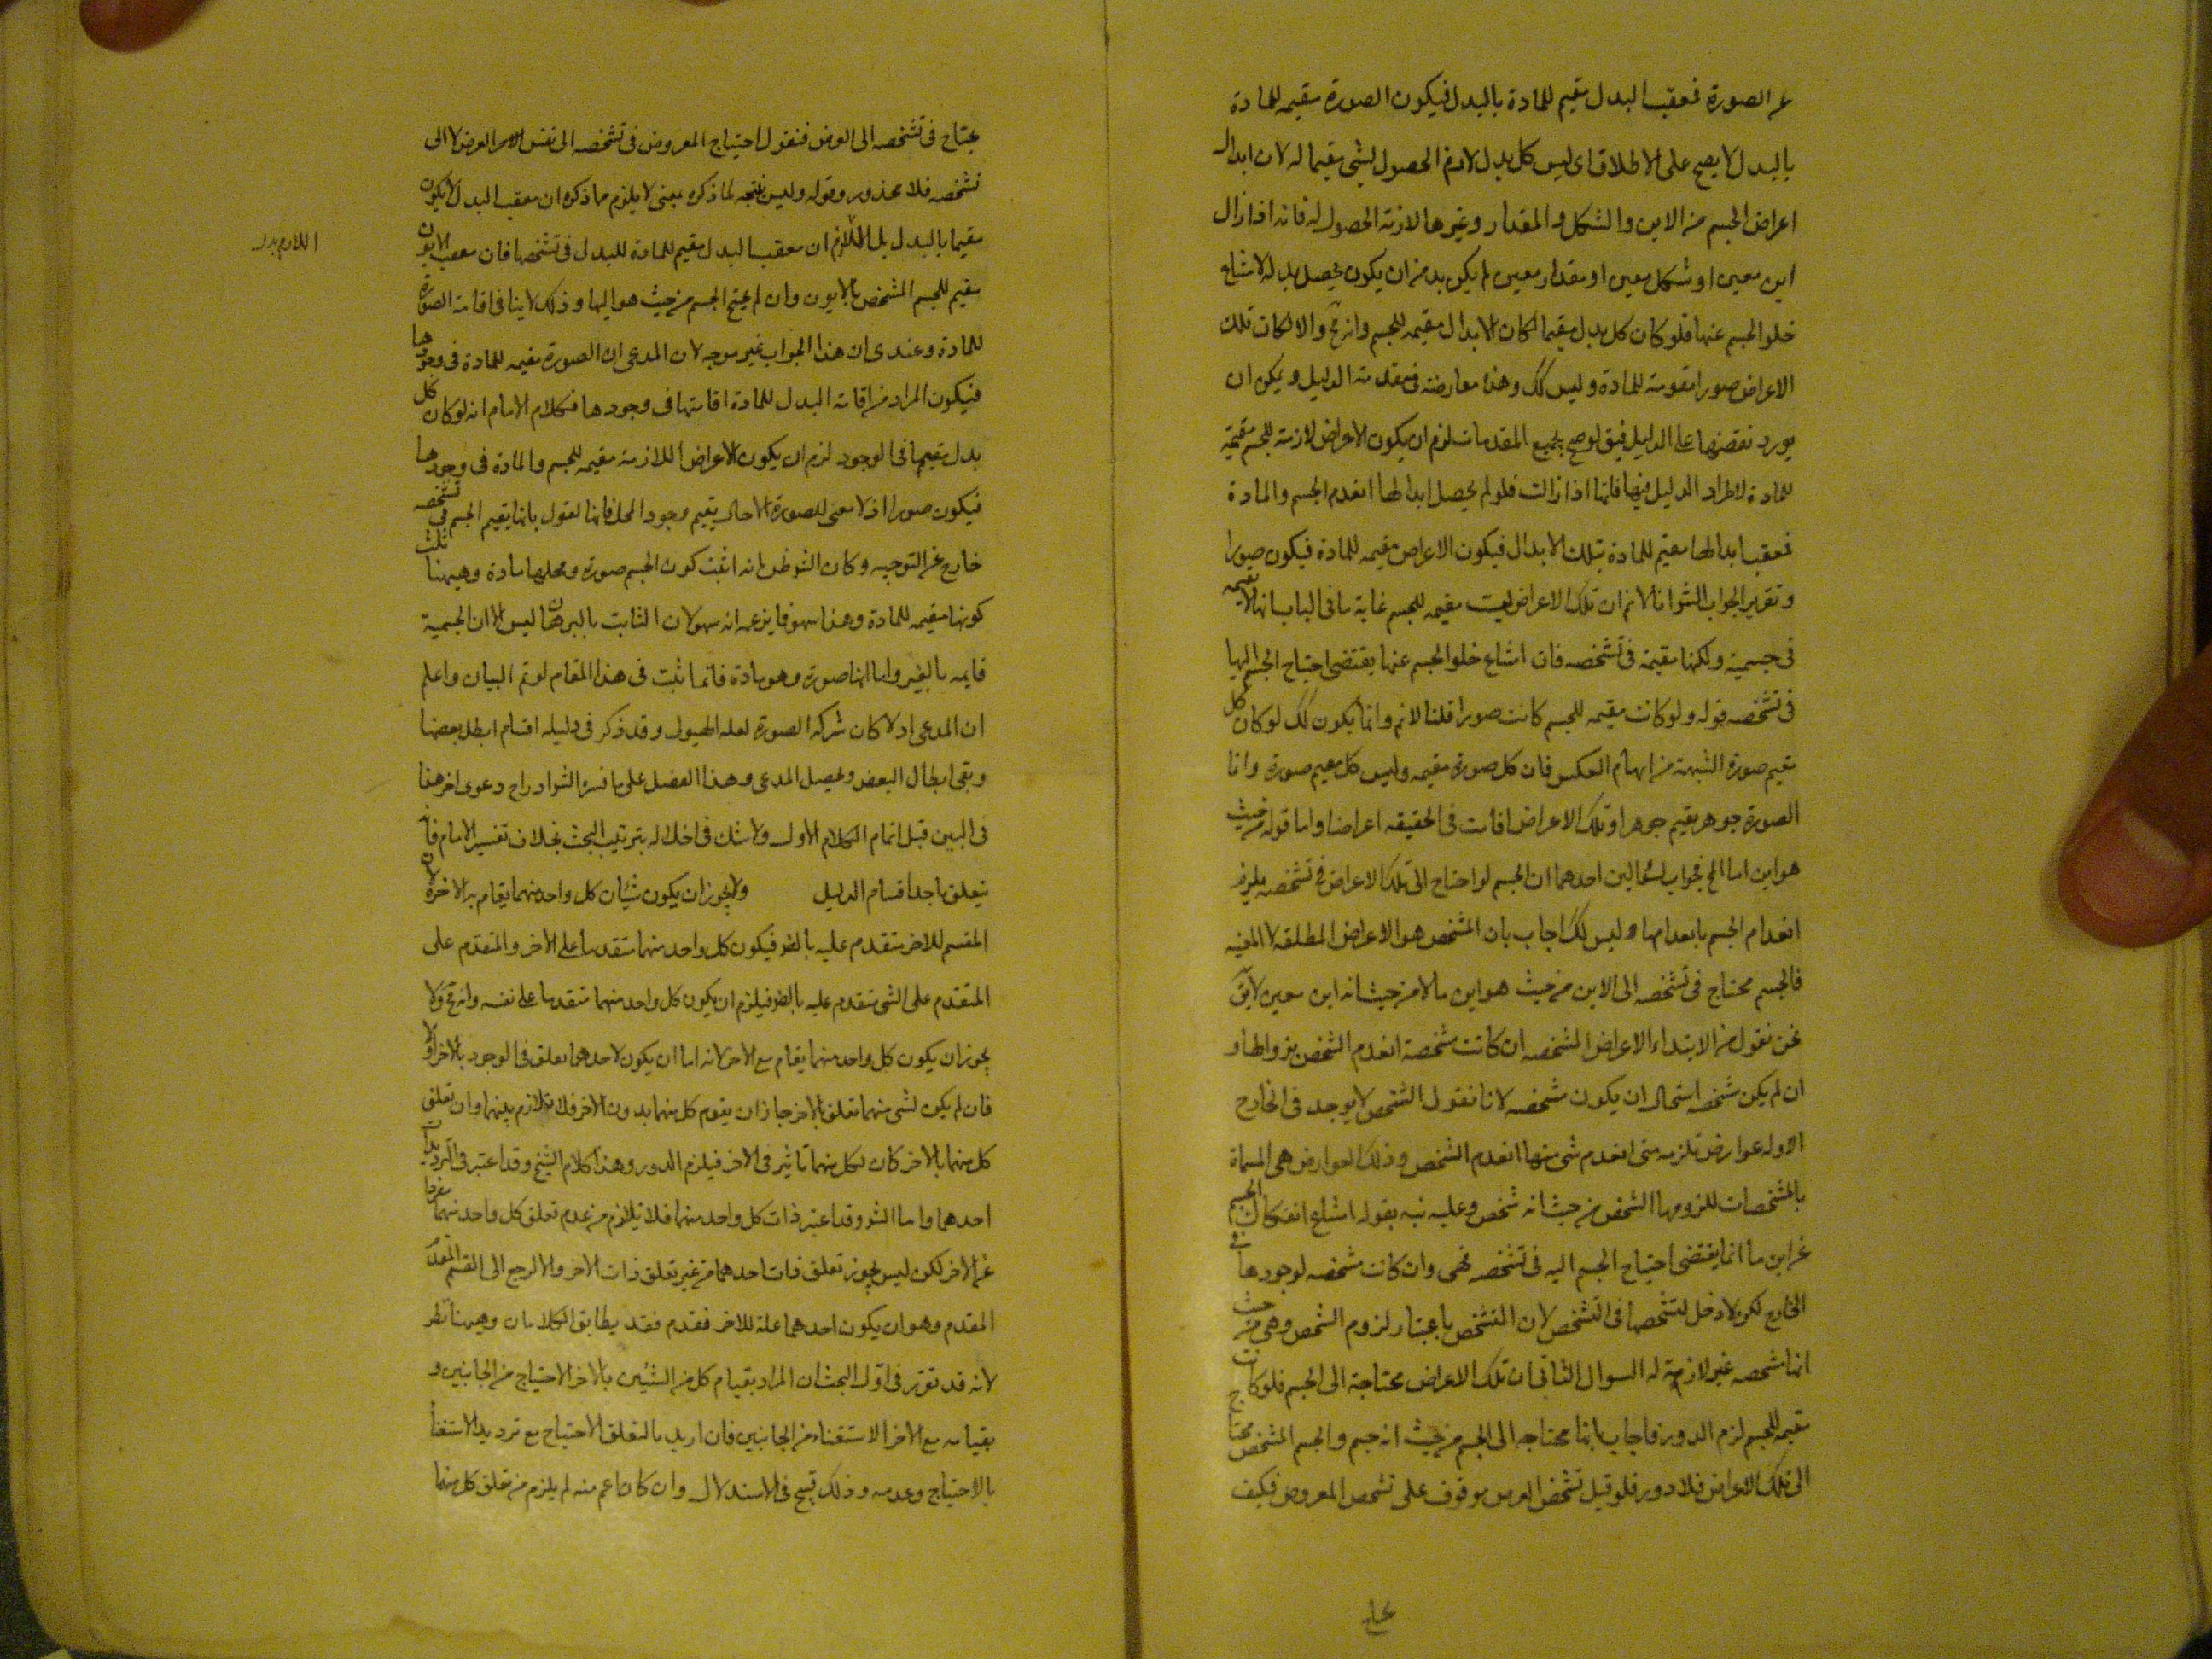 عن الصورة فمعقب البدل مقيم للمادة بالبدل فيكون الصورة مقيمه للمادة
بالبدل لا يصح على الاطلاق اى ليس كل بدل لازم الحصول لشى مقيما له لان ابدال
اعراض الجسم من الاين والشكل والمقدار وغيرها لازمة الحصول له فانه اذا زال
اين معين او شكل معين او مقدار معين لم يكن بد من ان يكون يحصل بدله لامتناع
خلو الجسم عنها فلو كان كل بدل مقيما لكان الابدال مقيمه للجسم وانه مح والا لكان تلك
الاعراض صورا مقومة للمادة وليس كك وهذه معارضة فى مقدمة الدليل ويمكن ان
يورد نقضها على الدليل فيق لو صح بجميع المقدمات لزم ان يكون الاعراض لازمة للجسم مقيمة
للمادة لاطراد الدليل فيها فانها اذا زالت فلو لم يحصل ابدالها انعدم الجسم والمادة
فمعقب ابدالها مقيم للمادة بتلك الابدال فيكون الاعراض مقيمه للمادة فيكون صورا
وتقرير الجواب الشو انا لا نم ان تلك الاعراض ليست مقيمه للجسم غاية ما فى الباب انها لا تقيمه
فى جسمية ولكنها مقيمة فى تشخصه فان امتناع خلو الجسم عنها يقتضى احتياج الجسم اليها
فى تشخصه قوله ولو كانت مقيمه للجسم كانت صورا قلنا لا نم وانما يكون كك لو كان كل
مقيم صورة الشبهة من ايهام العكس فان كل صورة مقيمه وليس كل مقيم صورة وانما
الصورة جوهر يقيم جوهرا وتلك الاعراض اقامت فى الحقيقه اعراضا واما قوله من حيث
هو اين اما الخ فجواب لسؤالين احدهما ان الجسم لو احتاج الى تلك الاعراض فى تشخصه يلزم
انعدام الجسم بانعدامها وليس كك اجاب بان المشخص هو الاعراض المطلقه لا المعينه
فالجسم محتاج فى تشخصه الى الاين من حيث هو اين ما لا من حيث انه اين معين لا يق
نحن نقول من الابتداء الاعراض المشخصه ان كانت مشخصة انعدم الشخص بزوالها و
ان لم يكن مشخصه استحال ان يكون مشخصه لانا نقول الشخص لا يوجد فى الخارج
الا وله عوارض تلزمه متى انعدم شى منها انعدم الشخص وذلك العوارض هى المسماة
بالمشخصات للزومها الشخص من حيث انه شخص وعليه نبه بقوله امتناع انفكاك الجسم
عن اين ما انما يقتضى احتياج الجسم اليه فى تشخصه فهى وان كانت مشخصه لوجودها فى
الخارج لكن لا دخل لتشخصها فى التشخص لان التشخص باعتبار لزوم الشخص وهى من حيث
انها شخصه غير لازمة له السوال الثانى ان تلك الاعراض محتاجة الى الجسم فلو كانت
مقيمه للجسم لزم الدور فاجاب بانها محتاجه الى الجسم من حيث انه جسم والجسم المشخص محتاج
الى تلك الاعراض فلا دور فلو قيل تشخص العرض موقوف على تشخص المعروض فكيف
يحتاج فى تشخصه الى العرض فنقول احتياج المعروض فى تشخصه الى نفس العرض لا الى
تشخصه فلا محذور وقوله وليس نتيجه لما ذكره بمعنى لا يلزم مما ذكره ان معقب البدل لا يكون
مقيما بالبدل بل اللازم ان معقب البدل مقيم للمادة للبدل فى تشخصها فان معقب الايون
مقيم للجسم المشخص بالايون وان لم يحتج الجسم من حيث هو اليها وذلك لا ينافى اقامة الصورة
للمادة وعندى ان هذا الجواب غير موجه لان المدعى ان الصورة مقيمه للمادة فى وجودها
فيكون المراد من اقامة البدل للمادة اقامتها فى وجودها فكلام الامام انه لو كان كل
بدل مقيما فى الوجود لزم ان يكون الاعراض اللازمة مقيمه للجسم والمادة فى وجودها
فيكون صورا اذ لا معنى للصورة الا حال يقيم وجود المحل فانما لقول بانها يقيم الجسم فى تشخصه
خارج عن التوجيه وكان الشو ظن انه اثبت كون الجسم صورة ومحلها مادة وههنا ثلث
كونها مقيمه للمادة وهذا سهو فا يزعم انه سهو لان الثابت بالبرهان ليس الا ان الجسمية
قايمه بالغير واما انها صورة وهو مادة فانما ثبت فى هذا المقام لو تم البيان واعلم
ان المدعى اولا كان شركه الصورة لعله الهيولى وقد ذكر فى دليله اقسام ابطل بعضها
وبقى ابطال البعض وتحصيل المدعى وهذا الفصل على ما فسره الشو ادراج دعوى اخر هنا
فى البين قبل اتمام الكلام الاول ولا شك فى اخلاله بترتيب البحث بخلاف تفسير الامام فانه
يتعلق باحد اقسام الدليل ولا يجوز ان يكون شيئان كل واحد منهما يقام به الاخر لان
المقسم للاخر متقدم عليه بالضر فيكون كل واحد منهما متقدما على الاخر والمتقدم على
المتقدم على الشى متقدم عليه بالضر فيلزم ان يكون كل واحد منهما متقدما على نفسه وانه مح ولا
يجوز ان يكون كل واحد منهما يقام مع الاخر لانه اما ان يكون لاحدهما تعلق فى الوجود بالاخر او لا
فان لم يكن لشى منهما تعلق بالاخر جاز ان يقوم كل منهما بدون الاخر فلا تلازم بينهما وان تعلق
كل منهما بالاخر كان لكل منهما تاثير فى الاخر فيلزم الدور وهذا كلام الشيخ وقد اعتبر فى الترديد
احدهما واما الشو وقد اعتبر ذات كل واحد منهما فلا تلازم من عدم تعلق كل واحد منهما
عن الاخر لكن ليس يجوز تعلق ذات احدهما من غير تعلق ذات الاخر والا لرجع الى القسم
المقدم وهو ان يكون احدهما علة للاخر فقدم فقد يطابق الكلامان وههنا نظر
لانه قد تقرر فى اول البحث ان المراد بقيام كل من الشيئين بالاخر الاحتياج من الجانبين و
بقيامه مع الاخر الاستغناء من الجانبين فان اريد بالتعلق الاحتياج مع ترديد الاستغنا
بالاحتياج وعدمه وذلك قبيح فى الاستدلال وان كان اعم منه لم يلزم من تعلق كل منهما